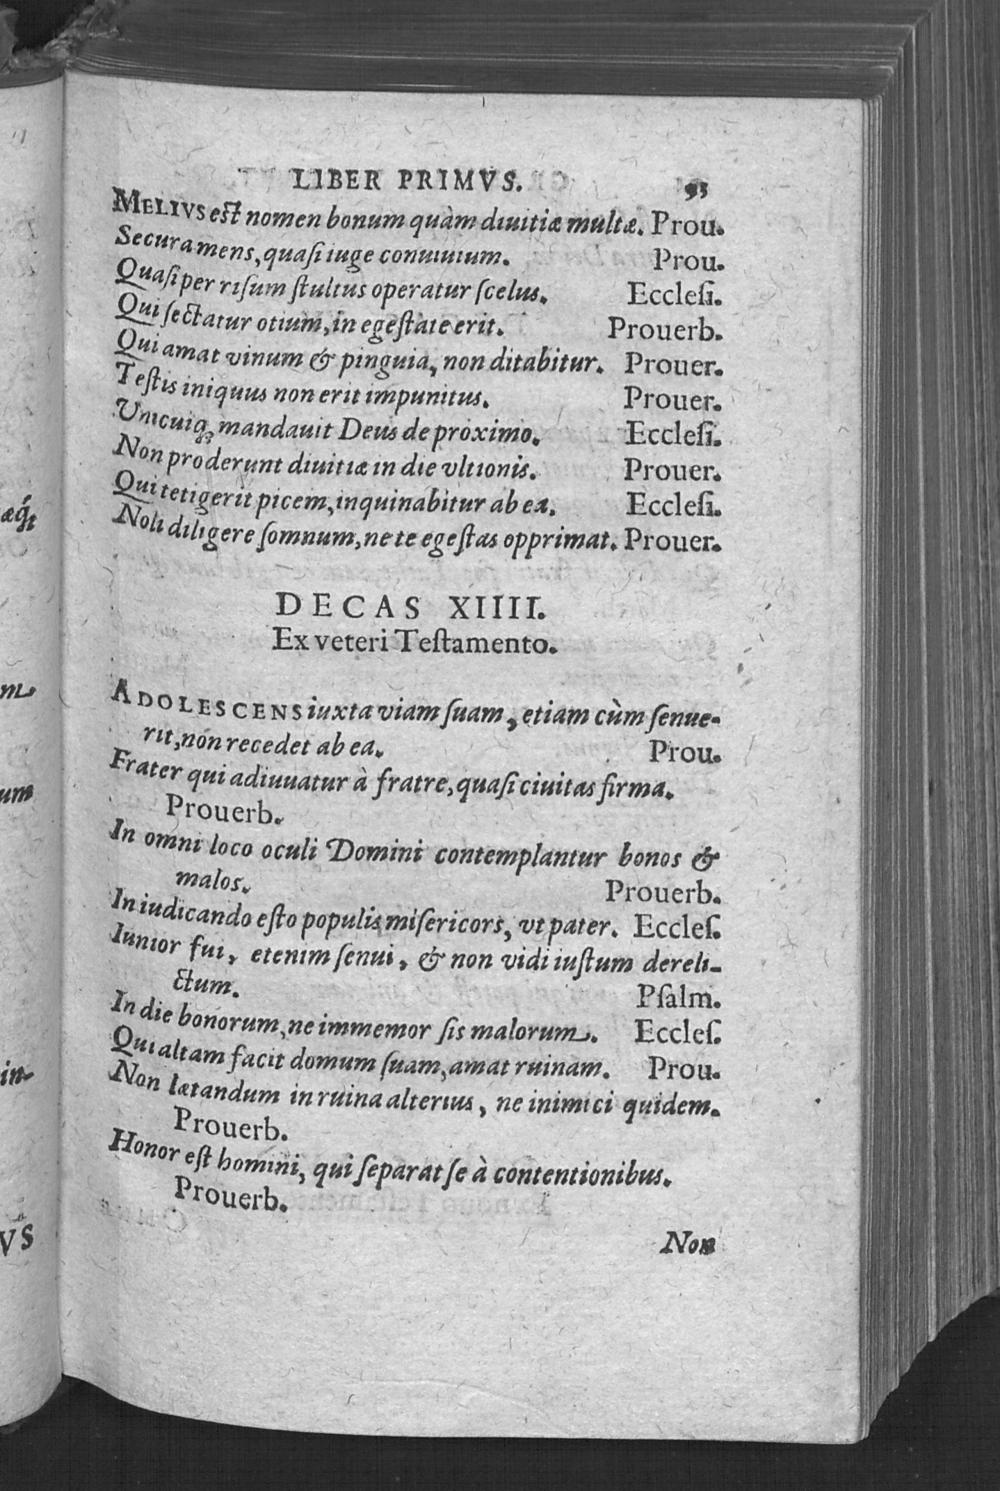 LIBER PRIMVS. 95
MELIVS est nomen bonum quàm diuitiæ multæ. Prou.
Secura mens, quaſi iuge conuiuium. Prou.
Quaſi per riſum ſtultus operatur ſcelus. Eccleſi.
Qui ſectatur otium, in egeſtate erit. Prouerb.
Qui amat vinum & pinguia, non ditabitur. Prouer.
Teſtis iniquus non erit impunitus. Prouer.
Vnicuiq; mandauit Deus de proximo. Eccleſi.
Non proderunt diuitiæ in die vltionis. Prouer.
Qui tetigerit picem, inquinabitur ab ea. Eccleſi.
Noli diligere ſomnum, ne te egeſtas opprimat. Prouer.
DECAS XIIII.
Ex veteri Teſtamento.
ADOLESCENS iuxta viam ſuam, etiam cùm ſenue-
rit, non recedet ab ea. Prou.
Frater qui adiuuatur à fratre, quaſi ciuitas firma.
Prouerb.
In omni loco oculi Domini contemplantur bonos &
malos. Prouerb.
In iudicando eſto populis miſericors, vt pater. Eccleſ.
Iunior fui, etenim ſenui, & non vidi iuſtum dereli-
ctum. Pſalm.
In die bonorum, ne immemor ſis malorum. Eccleſ.
Qui altam facit domum ſuam, amat ruinam. Prou.
Non lætandum in ruina alterius, ne inimici quidem.
Prouerb.
Honor eſt homini, qui ſeparat ſe à contentionibus.
Prouerb.
Non